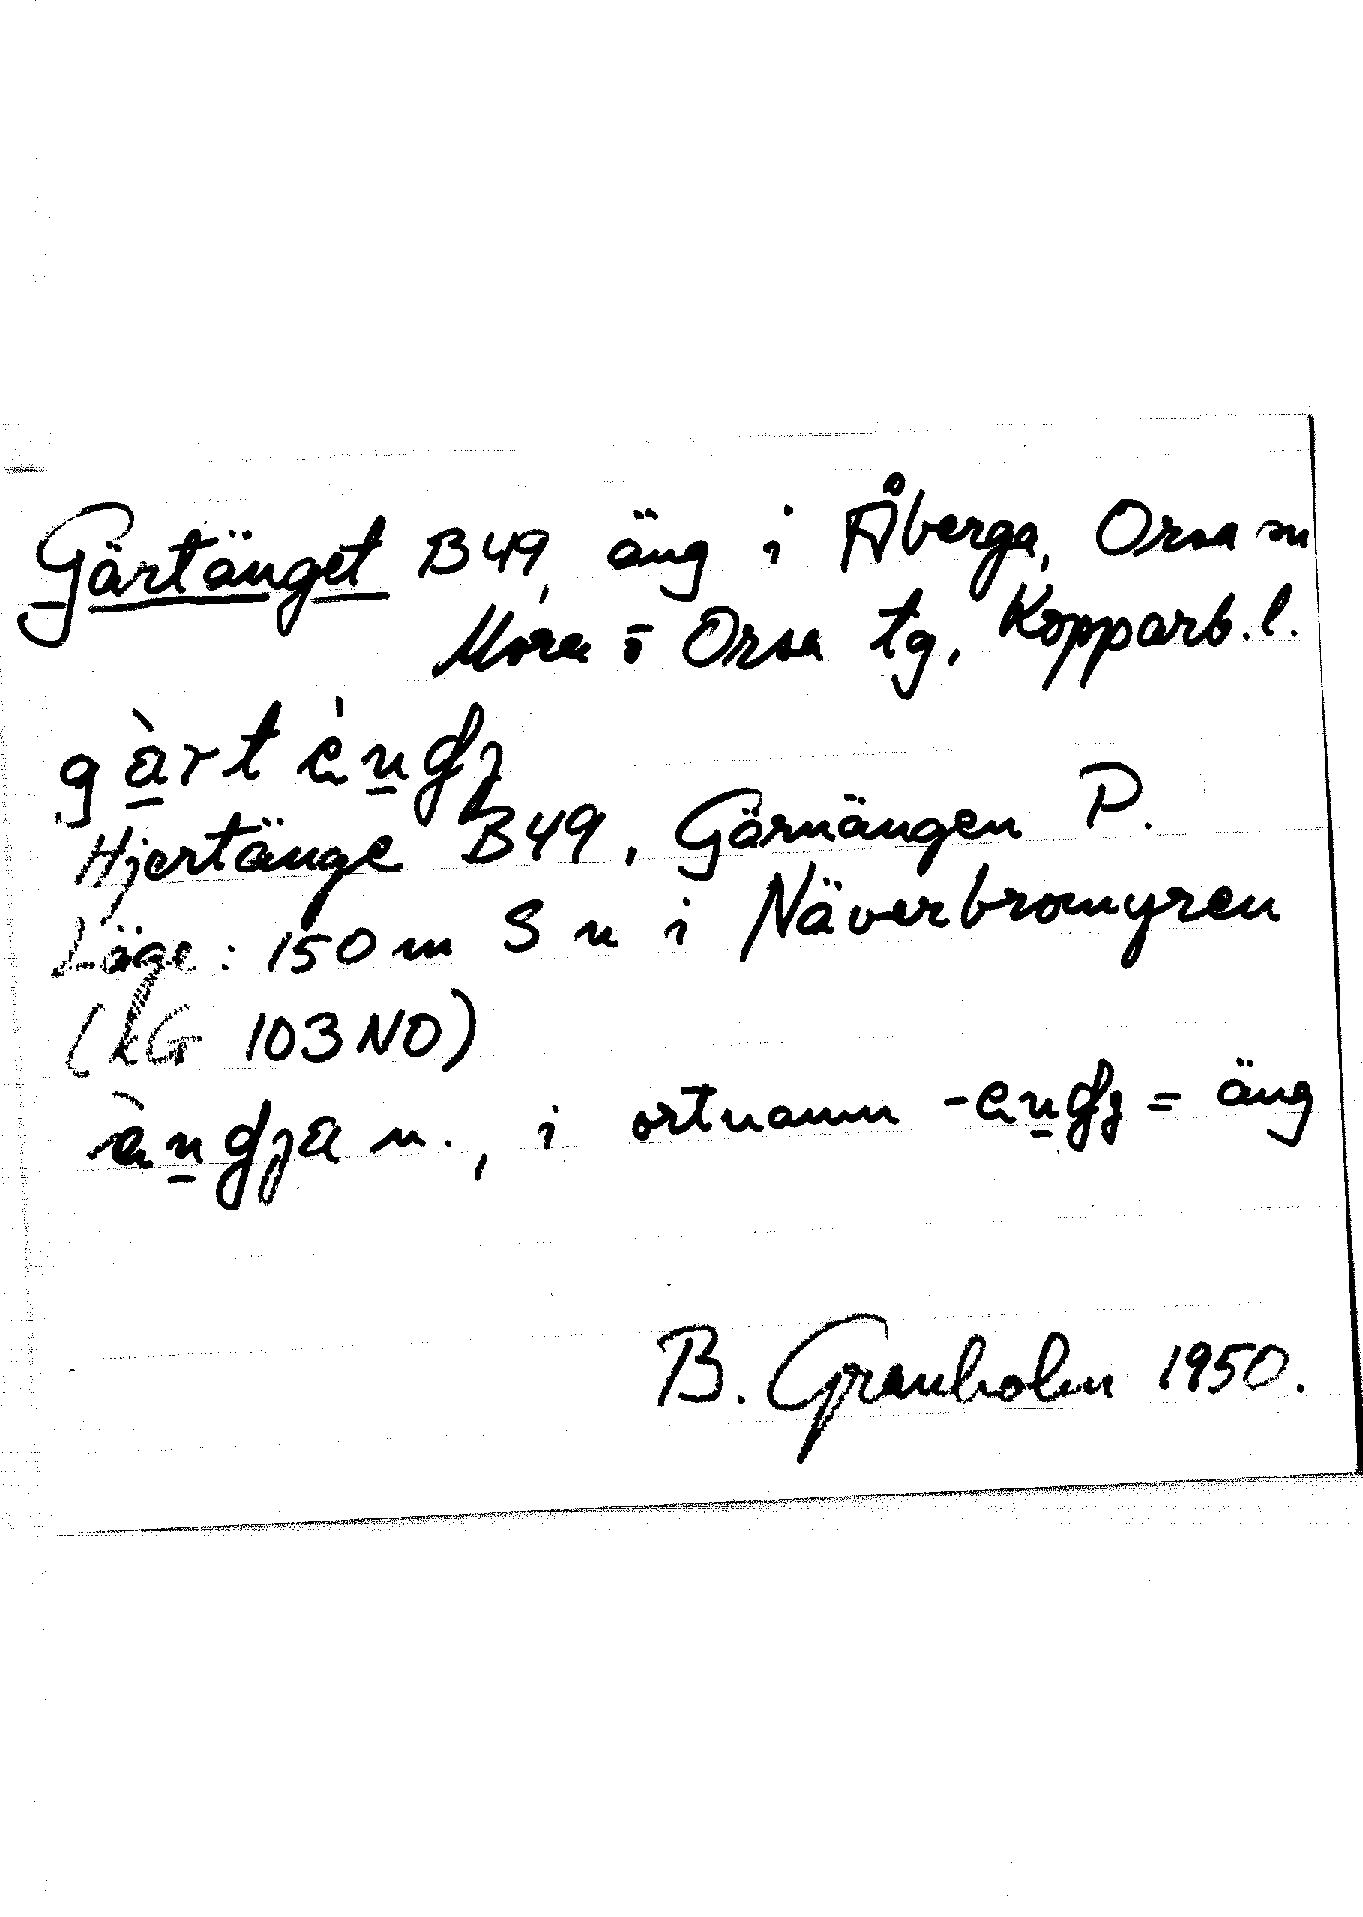 Gärtänget B49, äng i Åberga, Orsa sn
Mora o Orsa tg, Kopparb. l.
gà̱rt èṉgʒ
Hjertänge B49, Görnängen P.
Läge: 150 m S n i Näverbromyren
(kG 103 NO)
èṉgja n., i ortnamn -eṉgʒ = äng
B. Granholm 1950.